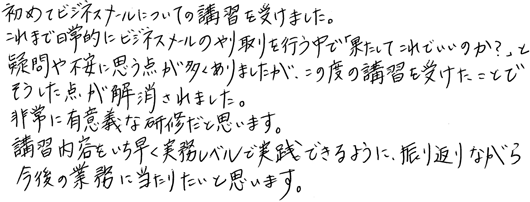 初めてビジネスメールについての講習を受けました。
これまで日常的にビジネスメールのやり取りを行う中で「果たしてこれでいいのか?」と
疑問や不安に思う点が多くありましたが、この度の講習を受けたことで
そうした点が解消されました。
非常に有意義な研修だと思います。
講習内容をいち早く実務レベルで実践できるように、振り返りながら
今後の業務に当たりたいと思います。